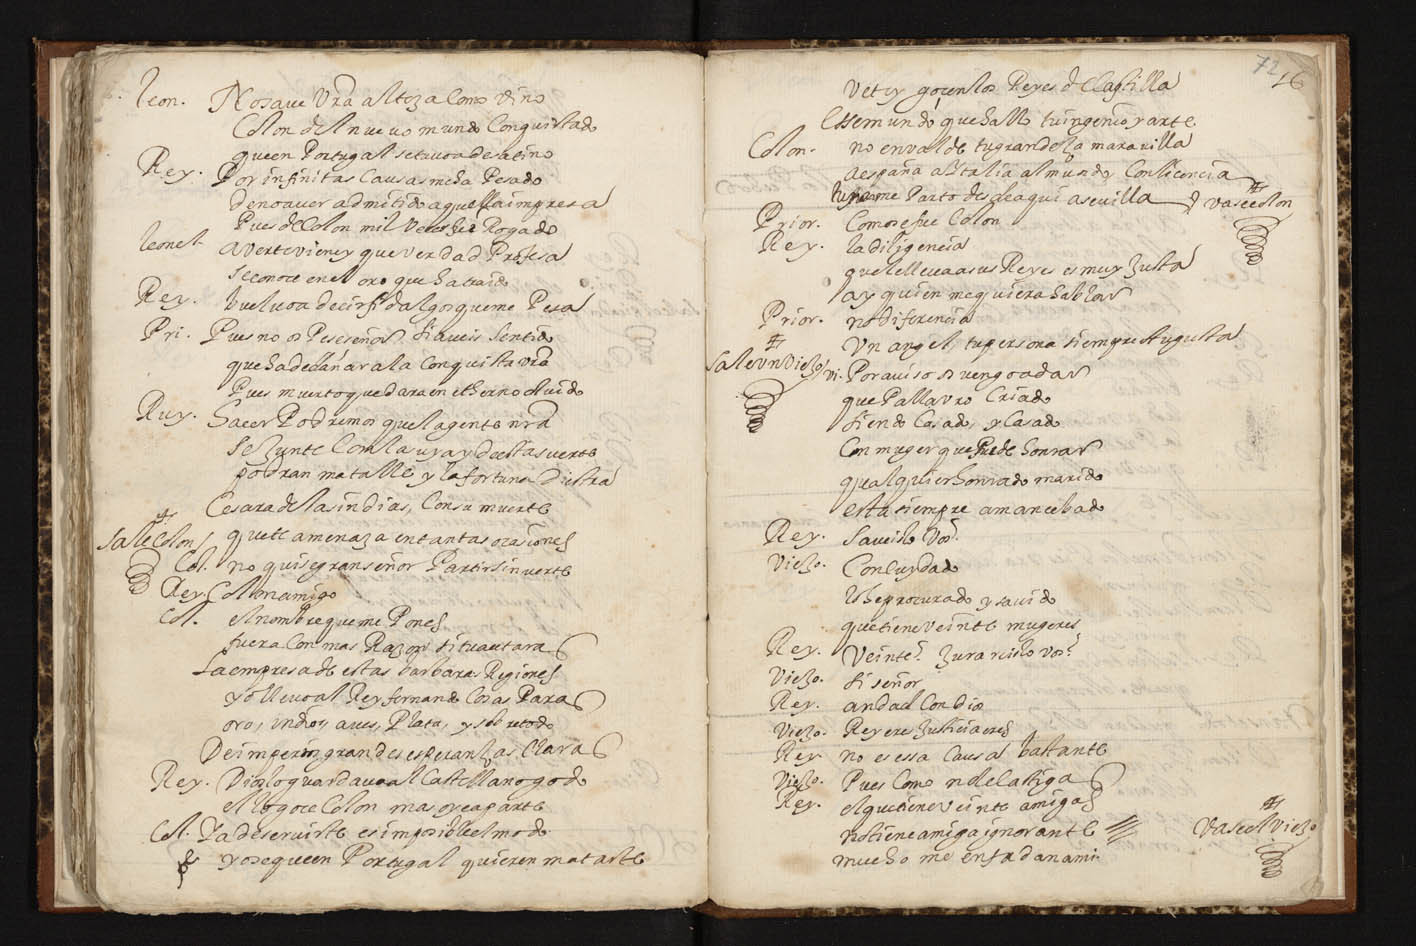 leon. No save Vra alteza Como vino
Colon del nueuo mundo Conquistado
que en Portugal se tuuo a desatino
Rey. Por infinitas Causas me ha Pesado
de no auer admitido aquella impresa
Pues de Colon mil Veces fui Rogado
leonel. a verte viene y que verdad Profesa
se conoce en el oro que ha traido
Rey. buelvo a decir fidalgos que me Pesa
Pri. Pues no os Pese señor si aueis sentido
que ha de dañar a la Conquista vra
Pues muerto quedara en etherno oluido
Ruy. hacer Podremos que la gente nra
se Junte Con la suya y de esta suerte
podran matalle y la fortuna diestra
Cesara de las indias, Con su muerte
sale Colon que te amenaza en tantas ocasiones
Col. no quise gran señor Partir sin verte
Rey. Colon amigo
Col. el nombre que me Pones
fuera Con mas Razon si tuuiara
la empresa de estas barbaras Regiones
yo lleuo al Rey fernando Cosas Raras
oro, indios, aues, Plata, y sobre todo
De imperios grandes esperanzas Claras
Rey. Dios lo guardaua al Castellano godo
el lo goce Colon mas oye aparte
Col. Ya de seruirte es imposible el modo
yo se que en Portugal quieren matarte
72 16
Vete y gocen los Reyes de Castilla
Ese mundo que hallo tu ingenio y arte
Colon. no en valde tu grandeza marauilla
a españa a Italia al mundo y Con licencia
tuya me Parto desde aqui a seuilla vase colon
Prior. Como se fue Colon
Rey. la diligencia
que le lleua a sus Reyes es muy Justa
ay quien me quiera hablar
Prior. no diferencia
Vn angel, tu persona siempre Augusta
sale Vn Viejo Vi. Por auiso os vengo a dar
que Pallauro Criado
siendo Casado, y Casado
Con muger que Puede honrar
qualquier honrado marido
esta siempre amancebado
Rey. Saueislo Vos?
Viejo. Con cuydado
lo he procurado y sauido
que tiene veinte mugeres
Rey. Veinte? Jurareislo vos?
Viejo. si señor
Rey. andad Con dios
Viejo. Rey eres Justicia eres
Rey no es esa Causa bastante
Viejo. Pues Como no le castiga
Rey. el que tiene veinte amigas
no tiene amiga ignorante vase el viejo
mucho me enfadan a mi